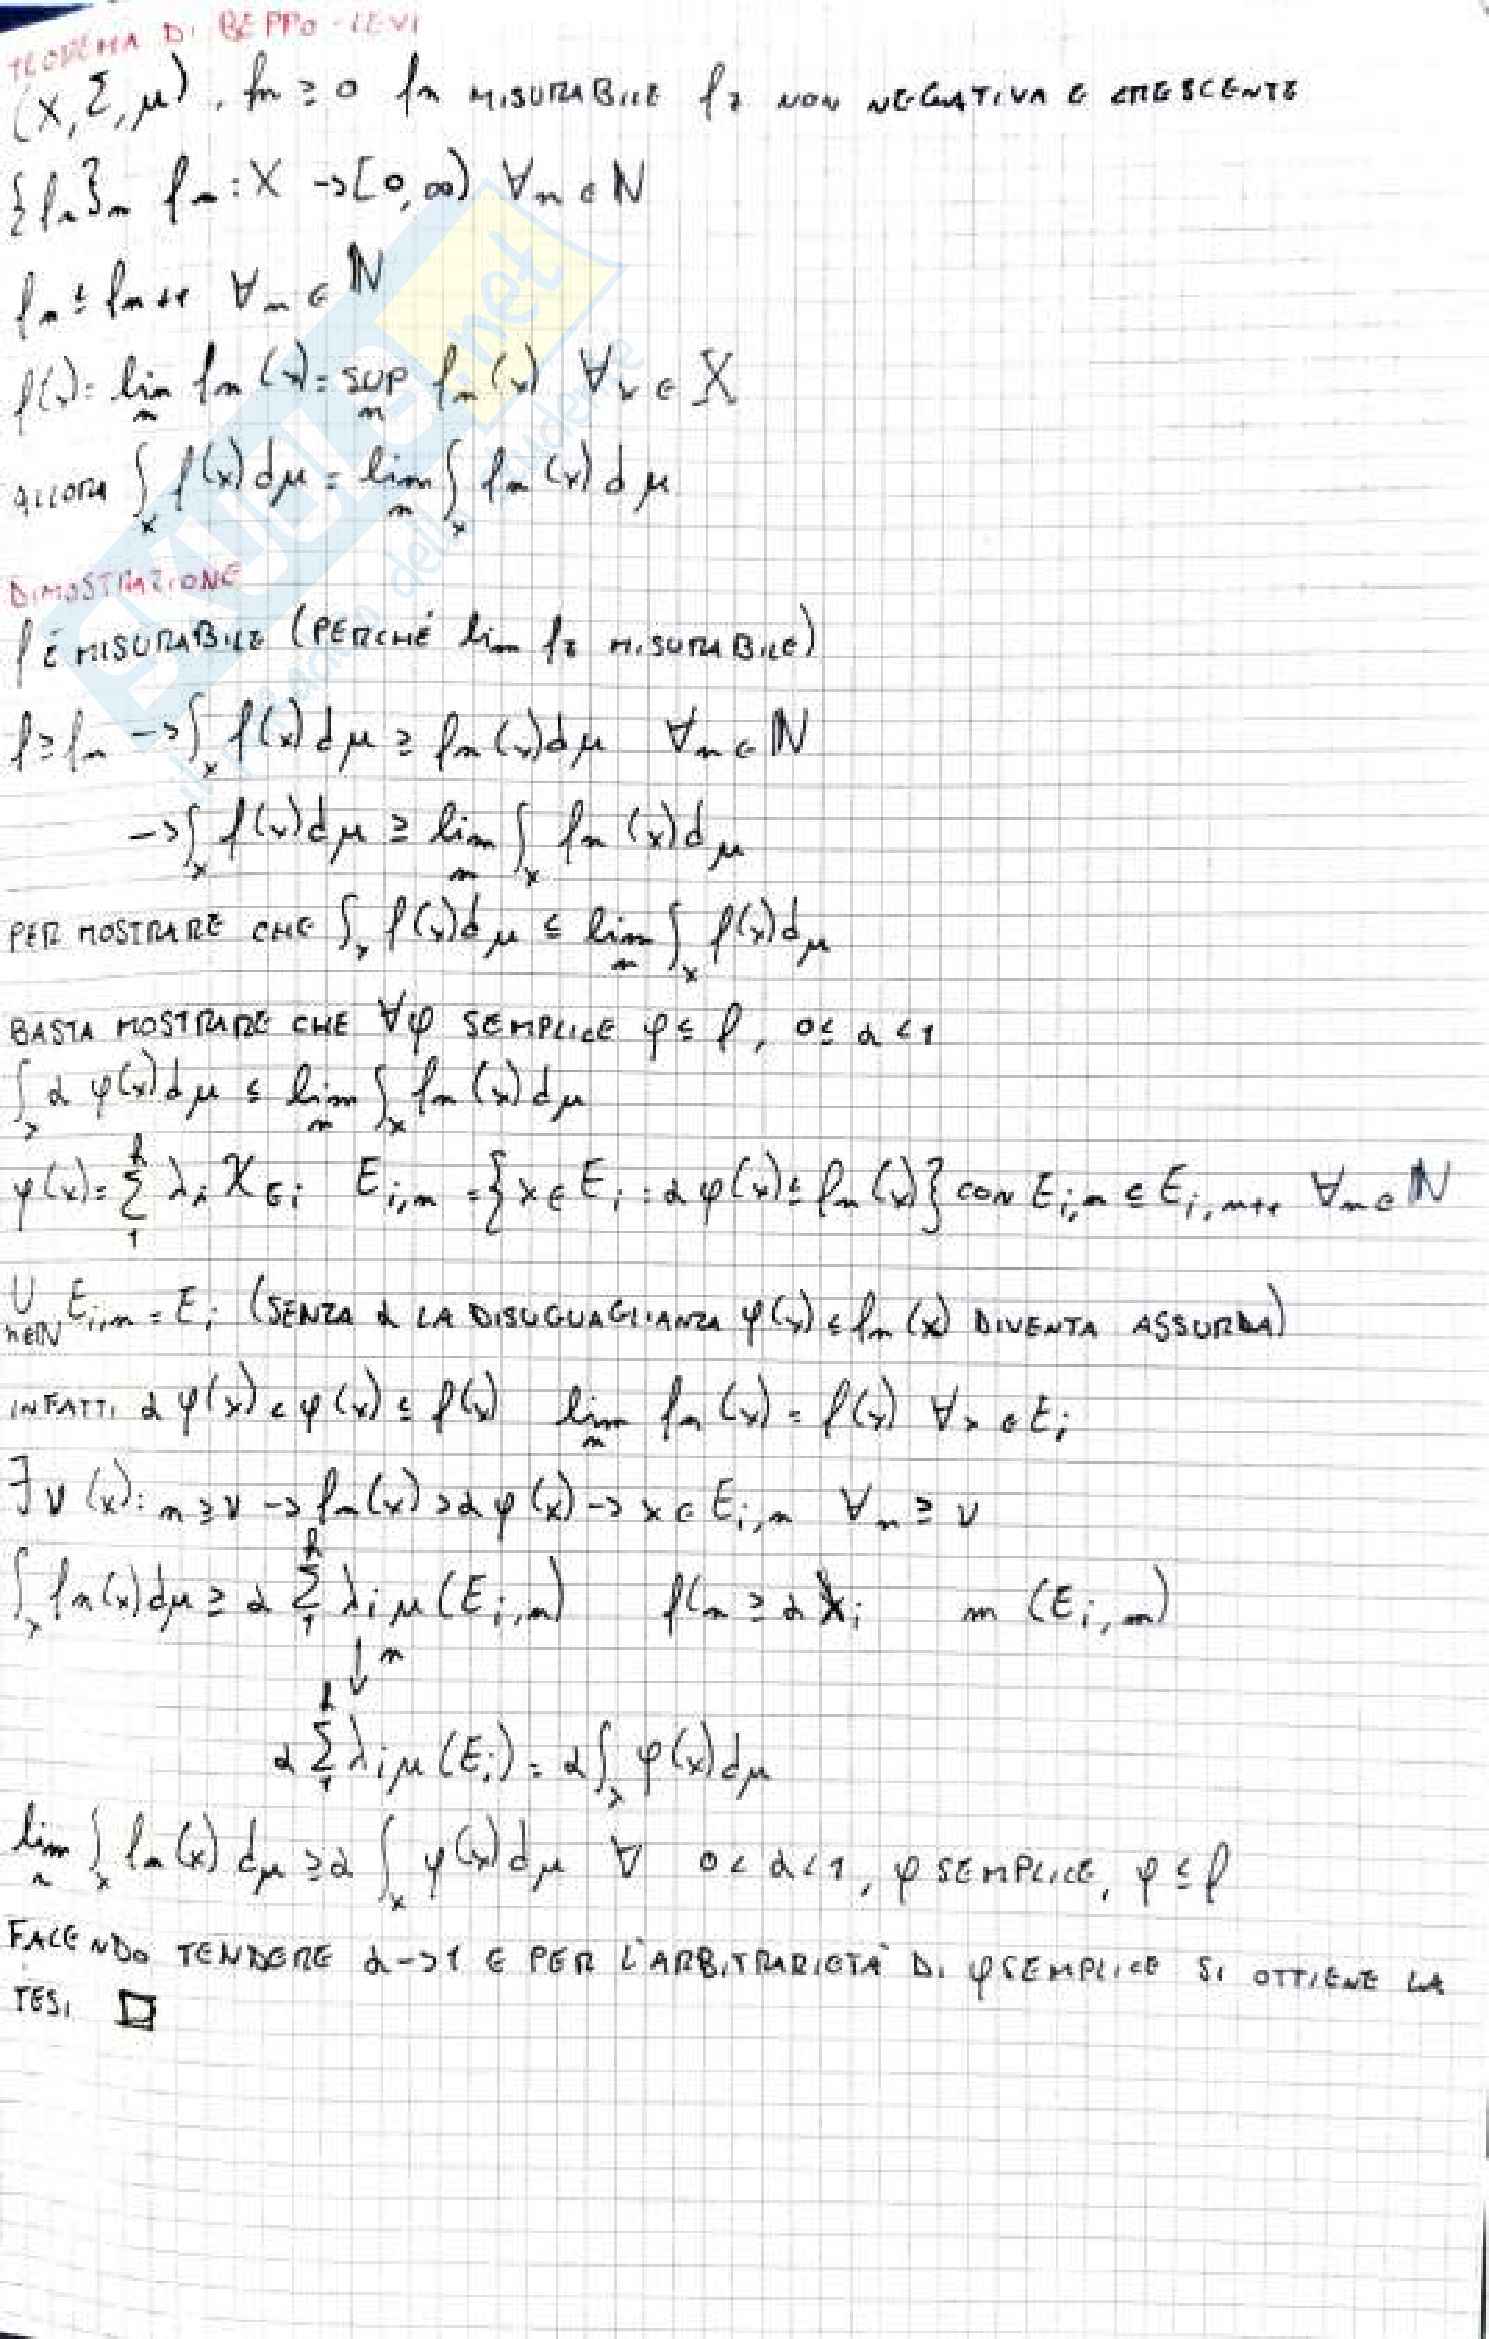 TEOREMA DI BEPPO-LEVI
(X, Σ, μ), fn ≥ 0 fn MISURABILE fz NON NEGATIVA E CRESCENTE
{fn}n fn: X -> [0,∞) ∀n ∈ N
fn ≤ fn+1 ∀n ∈ N
f(x) = lim n fn(x) = SUP n fn(x) ∀x ∈ X
ALLORA ∫x f(x)dμ = lim n ∫x fn(x)dμ
DIMOSTRAZIONE
f È MISURABILE (PERCHÉ lim fz MISURABILE)
f ≥ fn -> ∫x f(x)dμ ≥ fn(x)dμ ∀n ∈ N
-> ∫x f(x)dμ ≥ lim n ∫x fn(x)dμ
PER MOSTRARE CHE ∫x f(x)dμ ≤ lim n ∫x f(x)dμ
BASTA MOSTRARE CHE ∀φ SEMPLICE φ ≤ f, 0 ≤ α < 1
∫x α φ(x)dμ ≤ lim n ∫x fn(x)dμ
φ(x) = Σ1^k λi χEi Ei,n = {x ∈ Ei : αφ(x) ≤ fn(x)} CON Ei,n ⊆ Ei,n+1 ∀n ∈ N
∪ n∈N Ei,n = Ei (SENZA α LA DISUGUAGLIANZA φ(x) ≤ fn(x) DIVENTA ASSURDA)
INFATTI αφ(x) < φ(x) ≤ f(x) lim n fn(x) = f(x) ∀x ∈ Ei
∃ν(x): n ≥ ν -> fn(x) > αφ(x) -> x ∈ Ei,n ∀n ≥ ν
∫x fn(x)dμ ≥ α Σ1^k λi μ(Ei,n) f(n ≥ α λi m (Ei,n)
↓ n
α Σ1^k λi μ(Ei) = α ∫x φ(x)dμ
lim n ∫x fn(x)dμ ≥ α ∫x φ(x)dμ ∀ 0 < α < 1, φ SEMPLICE, φ ≤ f
FACENDO TENDERE α -> 1 E PER L'ARBITRARIETÀ DI φ SEMPLICE SI OTTIENE LA
TESI □
SKUOLA.net
il paradiso dello studente